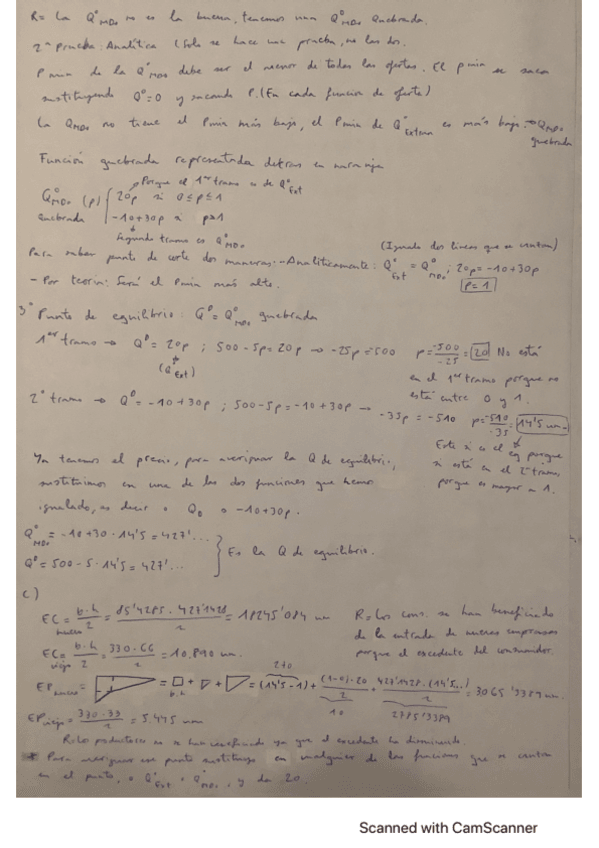 R= La Q°MDO no es la buena, tenemos una Q°MDO Quebrada.
2ª Prueba: Analítica (Solo se hace una prueba, no las dos.
P min de la Q°MDO debe ser el menor de todas las ofertas. El p min se saca
sustituyendo Q°=0 y sacando P. (En cada función de oferta)
La QMDO no tiene el Pmin más bajo, el Pmin de Q°Extran es más bajo. → QMDO quebrada
Función quebrada representada detras en naranja
Porque el 1er tramo es de Q°Ext
Q°MDO (p) { 20p si 0≤p≤1
quebrada -10+30p si p≥1
Segundo tramo es Q°MDO
(Igualo dos lineas que se cortan)
Para saber punto de corte dos maneras: - Analíticamente: Q°Ext = Q°MDO; 20p = -10+30p
- Por teoría: Será el Pmin más alto. p=1
3º Punto de equilibrio: Q^D = Q°MDO quebrada
1er tramo → Q^D = 20p ; 500-5p=20p → -25p=-500 p= -500/-25 = 20 No está
(Q°Ext) en el 1er tramo porque no
está entre 0 y 1.
2º tramo → Q^D = -10+30p ; 500-5p=-10+30p → -35p = -510 p= -510/-35 = 14'5 um.
Este si es el eq porque
si está en el 2º tramo,
porque es mayor a 1.
Ya tenemos el precio, para averiguar la Q de equilibrio,
sustituimos en una de las dos funciones que hemos
igualado, es decir o QD o -10+30p.
Q°MDO = -10+30·14'5 = 427'...
Q^D = 500-5·14'5 = 427'... } Es la Q de equilibrio.
c)
EC nuevo = b·h/2 = 85'4285·427'1428/2 = 18245'084 um
R= Los cons. se han beneficiado
de la entrada de nuevas empresas
porque el excedente del consumidor.
EC viejo = b·h/2 = 330·66/2 = 10.890 um.
EP nuevo = = □ + + = (14'5-1) + (1-0)·20/2 + 427'1428·(14'5...)/2 = 3065'3389 um.
b·h 10 2785'3389
EP viejo = 330·33/2 = 5.445 um
R: Lo productores no se han beneficiado ya que el excedente ha disminuido.
* Para averiguar ese punto sustituyo en cualquiera de las funciones que se cortan
en el punto, o Q°Ext o Q°MDO, y da 20.
Scanned with CamScanner